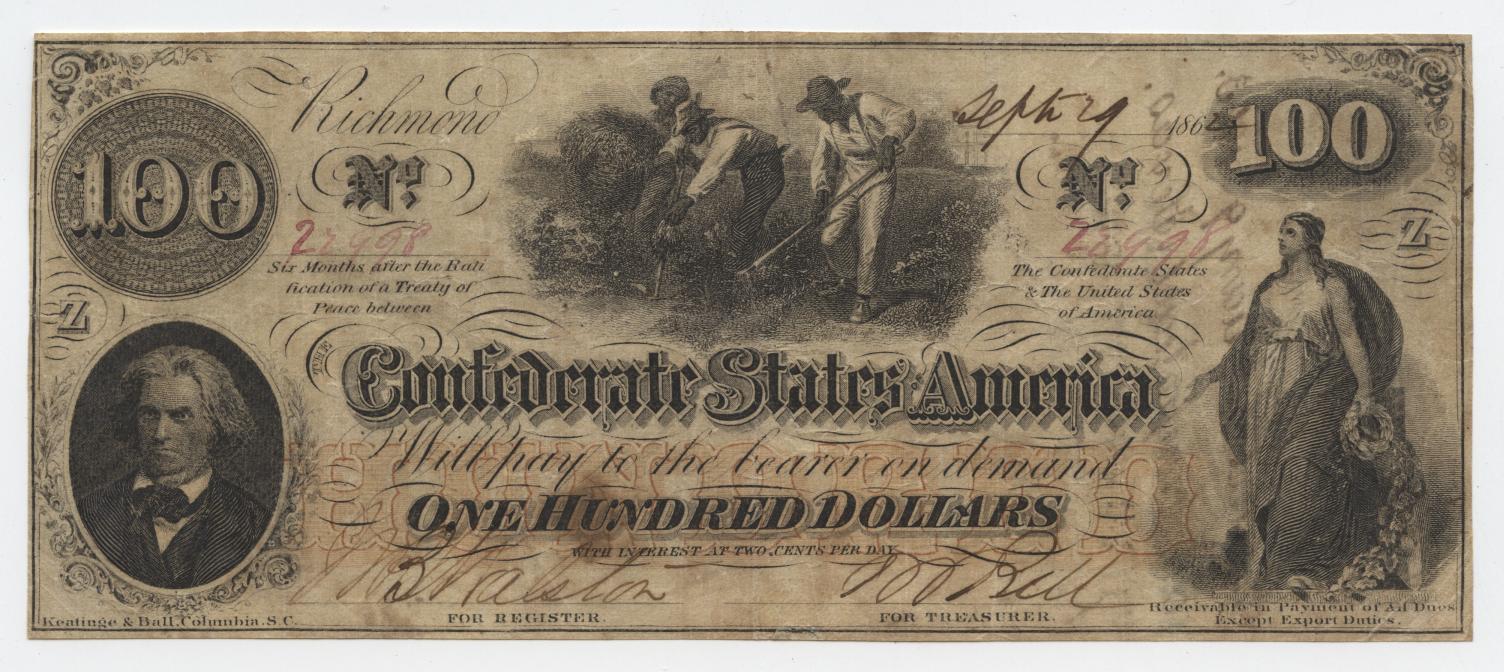 Richmond
Septr 29 1862
100
100
No
No
22998
22998
Six Months after the Rati
fication of a Treaty of
Peace between
The Confederate States
& The United States
of America
Z
Z
THE
Confederate States America
Will pay to the bearer on demand
ONE HUNDRED DOLLARS
HUNDRED
WITH INTEREST AT TWO CENTS PER DAY
FOR REGISTER.
FOR TREASURER.
Keatinge & Ball, Columbia, S.C.
Receivable in Payment of All Dues
Except Export Duties.